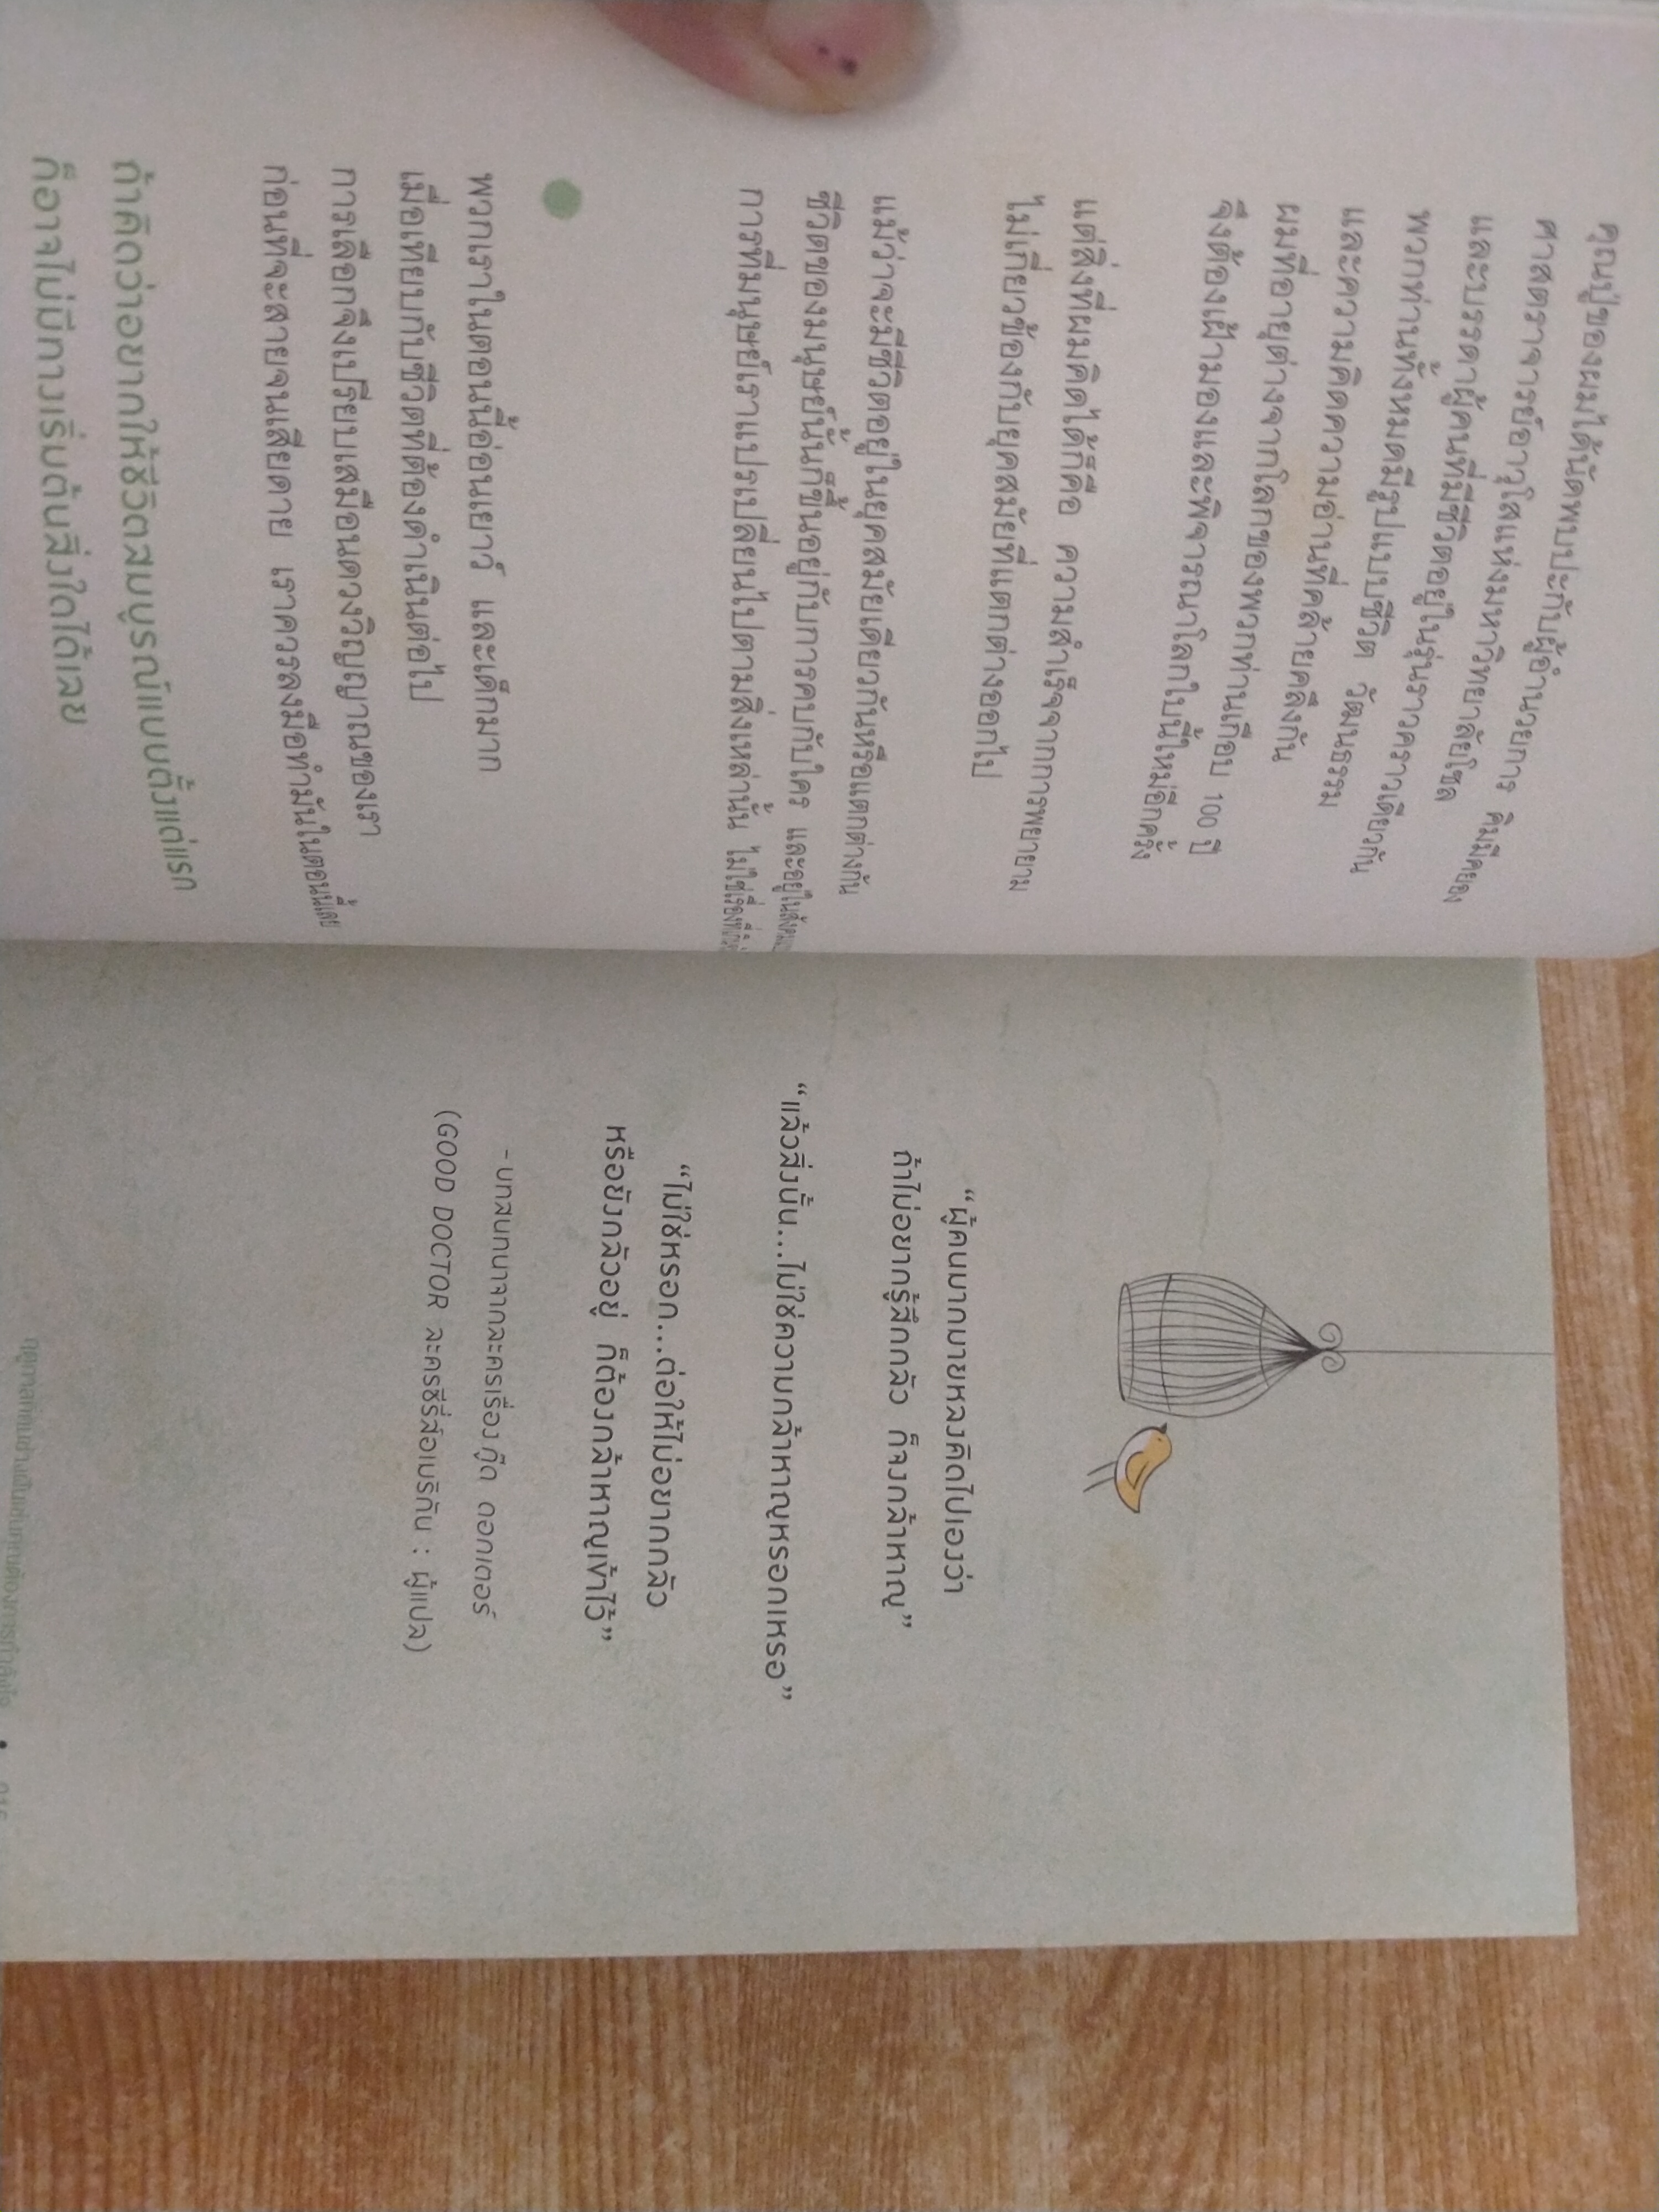 คุณปู่ของผมได้นัดพบปะกับผู้อำนวยการ คิมมีคยอง
ศาสตราจารย์อาวุโสแห่งมหาวิทยาลัยโซล
และบรรดาผู้คนที่มีชีวิตอยู่ในรุ่นราวคราวเดียวกัน
พวกท่านทั้งหมดมีรูปแบบชีวิต วัฒนธรรม
และความคิดความอ่านที่คล้ายคลึงกัน
ผมที่อายุต่างจากโลกของพวกท่านเกือบ 100 ปี
จึงต้องเฝ้ามองและพิจารณาโลกใบนี้ใหม่อีกครั้ง
แต่สิ่งที่ผมคิดได้ก็คือ ความสำเร็จจากการพยายาม
ไม่เกี่ยวข้องกับยุคสมัยที่แตกต่างออกไป
แม้ว่าจะมีชีวิตอยู่ในยุคสมัยเดียวกันหรือแตกต่างกัน
ชีวิตของมนุษย์นั้นก็ขึ้นอยู่กับการคบกับใคร และอยู่ในสังคม
การที่มนุษย์เราแปรเปลี่ยนไปตามสิ่งเหล่านั้น ไม่ใช่เรื่อง
พวกเราในตอนนี้อ่อนเยาว์ และเด็กมาก
เมื่อเทียบกับชีวิตที่ต้องดำเนินต่อไป
การเลือกจึงเปรียบเสมือนดวงวิญญาณของเรา
ก่อนที่จะสายจนเสียดาย เราควรลงมือทำมันในตอนนี้เลย
ถ้าคิดว่าอยากให้ชีวิตสมบูรณ์แบบตั้งแต่แรก
ก็อาจไม่มีทางเริ่มต้นสิ่งใดได้เลย
“ผู้คนมากมายหลงคิดไปเองว่า
ถ้าไม่อยากรู้สึกกลัว ก็จงกล้าหาญ”
“แล้วสิ่งนั้น...ไม่ใช่ความกล้าหาญหรอกเหรอ”
“ไม่ใช่หรอก...ต่อให้ไม่อยากกลัว
หรือยังกลัวอยู่ ก็ต้องกล้าหาญเข้าไว้”
- บทสนทนาจากละครเรื่อง กู๊ด ดอกเตอร์
(GOOD DOCTOR ละครซีรี่ส์อเมริกัน : ผู้แปล)